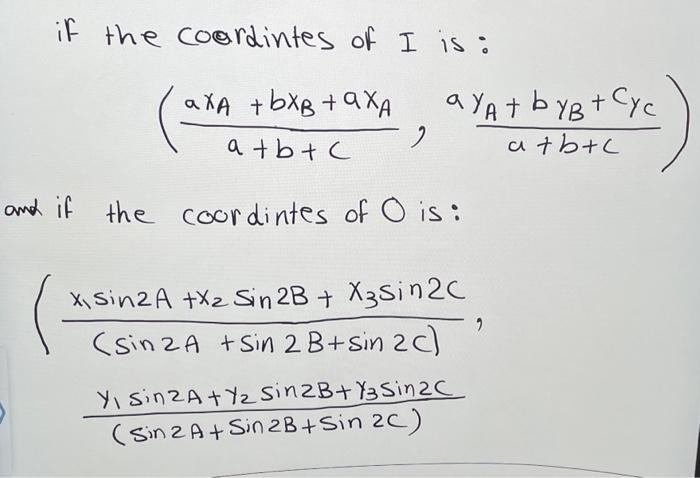 if the coordintes of I is :
( (axA + bxB + axA) / (a + b + c) , (ayA + byB + cyc) / (a + b + c) )
and if the coordintes of O is :
( (x₁ sin2A + x₂ sin2B + x₃ sin2C) / (sin2A + sin 2B + sin 2C) ,
(y₁ sin2A + y₂ sin2B + y₃ sin2C) / (sin2A + sin2B + sin 2C)